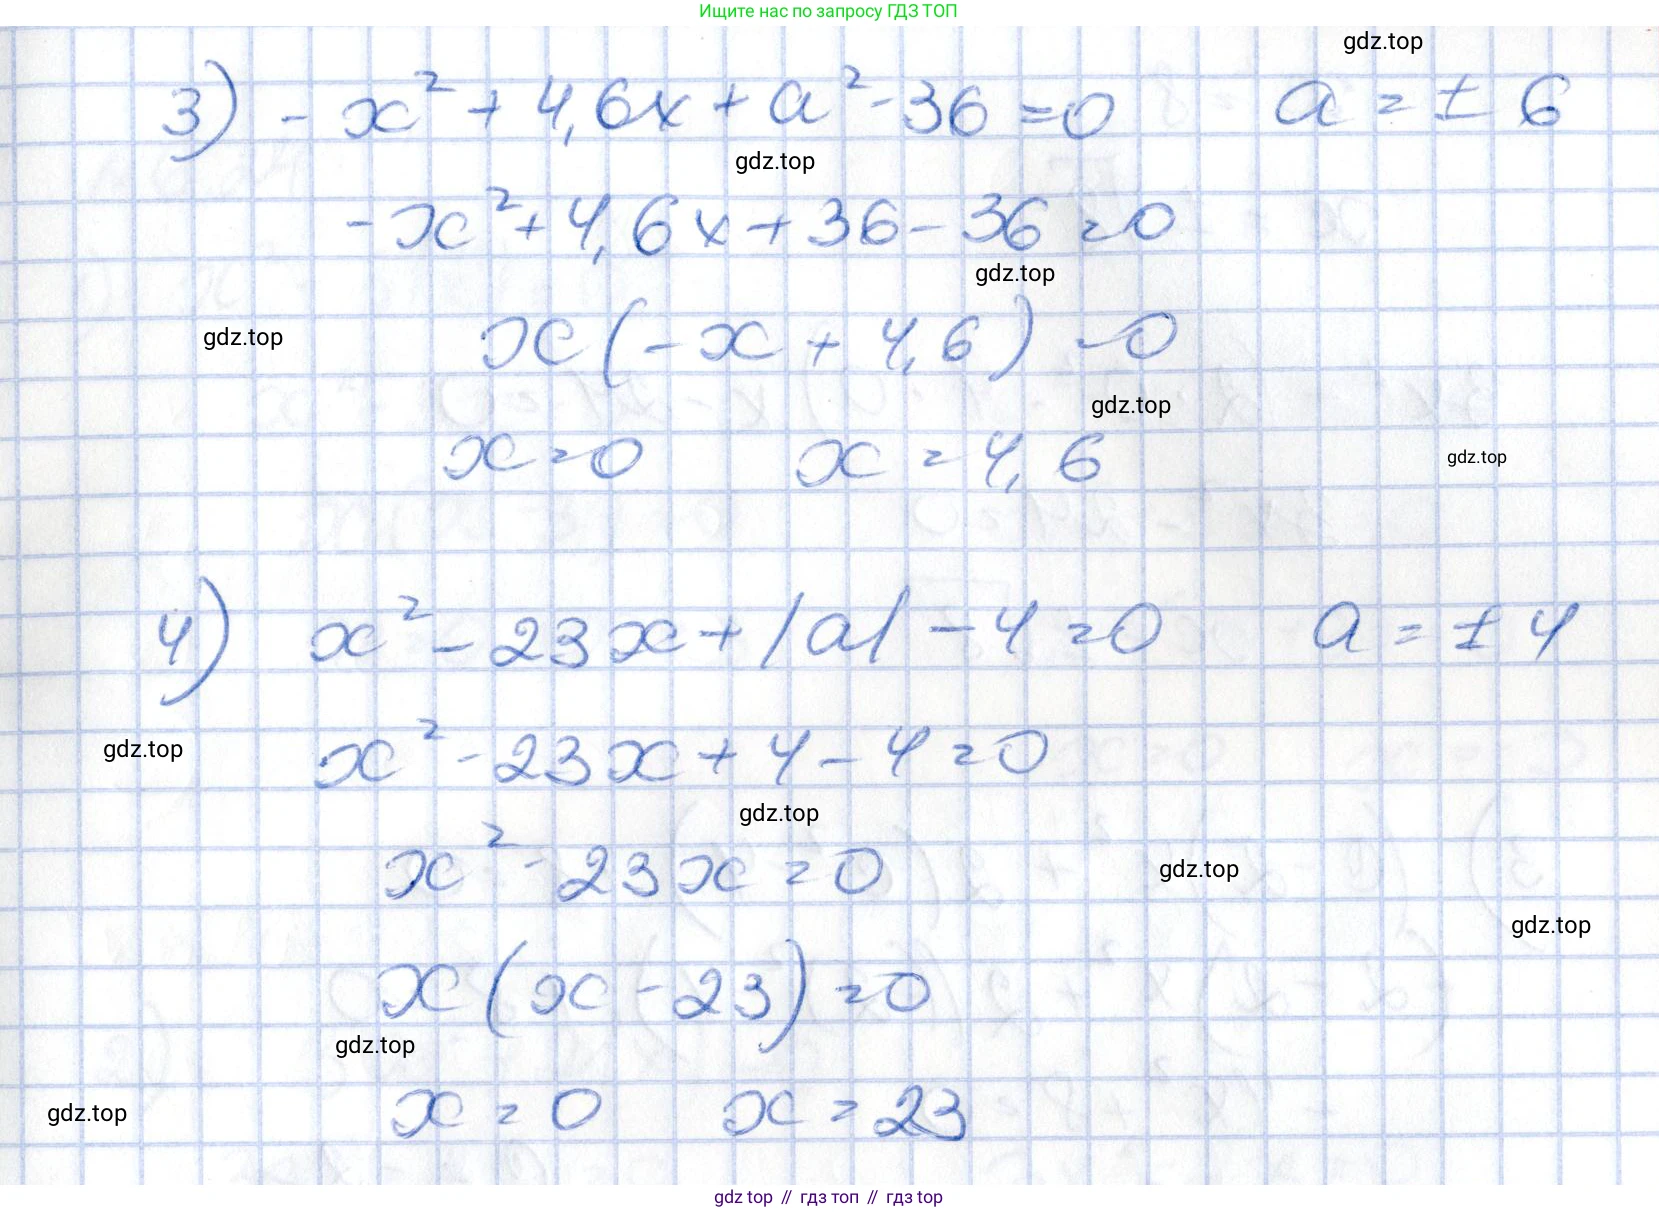 Ищите нас по запросу ГДЗ ТОП
gdz.top
3) - x² + 4,6x + a² - 36 = 0 a = ± 6
gdz.top
- x² + 4,6x + 36 - 36 = 0
gdz.top
gdz.top
x(-x + 4,6) = 0
gdz.top
x = 0 x = 4,6
gdz.top
4) x² - 23x + |a| - 4 = 0 a = ± 4
gdz.top
x² - 23x + 4 - 4 = 0
gdz.top
x² - 23x = 0
gdz.top
gdz.top
x(x - 23) = 0
gdz.top
gdz.top
x = 0 x = 23
gdz top // гдз топ // gdz top